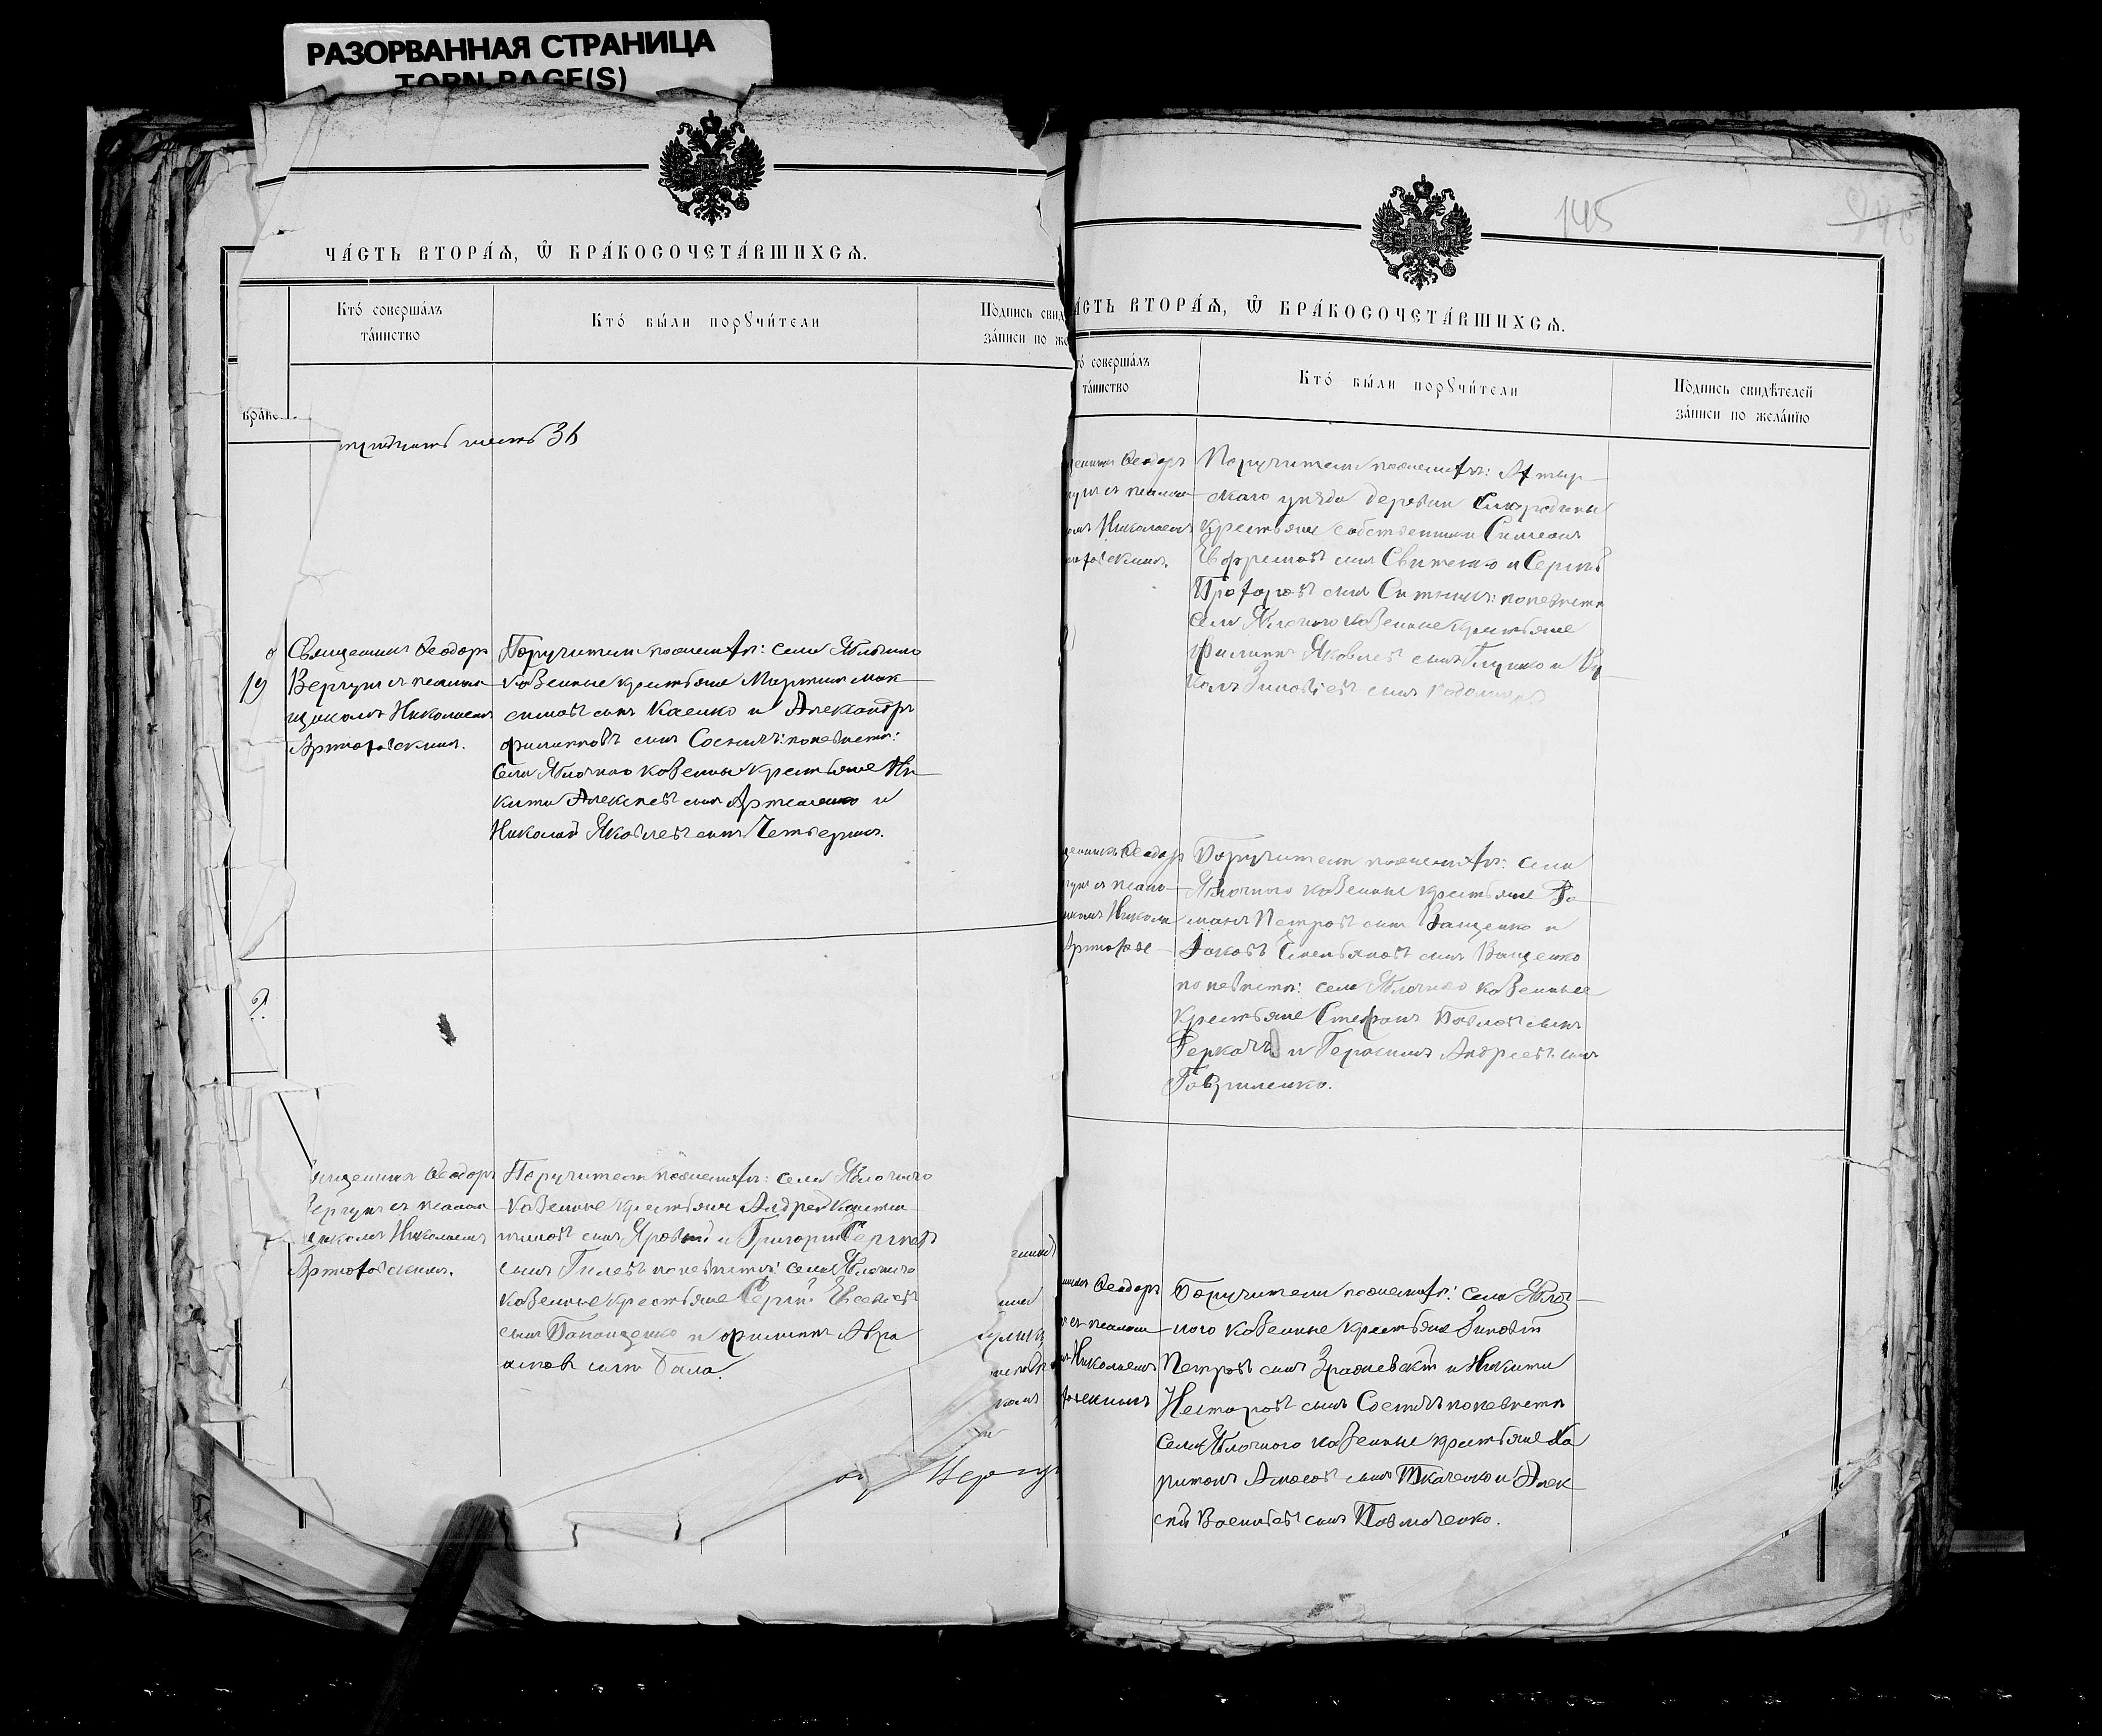 РАЗОРВАННАЯ СТРАНИЦА
TORN PAGE(S)
ЧА́СТЬ ВТОРА́Ѧ, Ѽ БРА́КОСОЧЕТА́ВШИХСѦ.
Кто́ соверша́лъ
та́инство
Кто́ бы́ли порꙋчи́тели
По́дпись свид
за́писи по же
тридцать шесть 36
19
Священникъ Ѳеодоръ
Вергунъ съ псалом
щикомъ Николаемъ
Артюховскимъ.
Поручители по женихѣ: села Яблочнаго
казенные крестьяне Мартинъ Мак
симовъ сынъ Касенко и Александръ
Филипповъ сынъ Соснинъ: по невѣстѣ:
села Яблочнаго казенные крестьяне Ни
кита Алексѣевъ сынъ Артеменко и
Николай Яковлевъ сынъ Четверикъ.
священникъ Ѳеодоръ
Вергунъ съ псалом
щикомъ Николаемъ
Артюховскимъ.
Поручители по женихѣ: села Яблочнаго
казенные крестьяне Андрей
сынъ Яровой и Григорій Сергѣевъ
сынъ Гилевъ по невѣстѣ: села Яблочнаго
казенные крестьяне Сергій Евсевіевъ
сынъ Панащенко и Филиппъ Авра
амовъ сынъ Бала.
Вергу
145
А́СТЬ ВТОРА́Ѧ, Ѽ БРА́КОСОЧЕТА́ВШИХСѦ.
то́ соверша́лъ
та́инство
Кто́ бы́ли порꙋчи́тели
По́дпись свидѣ́телей
за́писи по жела́нїю
щенникъ Ѳеодоръ
гунъ съ псалом
омъ Николаемъ
юховскимъ.
Поручители по женихѣ: Ахтыр
скаго уѣзда деревни Смородины
крестьяне собственники Симеонъ
Ефремовъ сынъ Свитенко и Сергѣй
Прохоровъ сынъ Ситникъ: по невѣстѣ
села Яблочнаго казенные крестьяне
Филиппъ Яковлевъ сынъ Глушко и Ву
колъ Зиновіевъ сынъ
щенникъ Ѳеодоръ
гунъ съ псало
щикомъ Никола
Артюхов
Поручители по женихѣ: села
Яблочнаго казенные крестьяне Ро
манъ Петровъ сынъ Ващенко и
Іаковъ Емельяновъ сынъ Ващенко
по невѣстѣ: села Яблочнаго казенные
крестьяне Стефанъ Павловъ сынъ
Деркачъ и Герасимъ Андреевъ сынъ
Гавриленко.
никъ Ѳеодоръ
съ псалом
Николаемъ
ховскимъ
Поручители по женихѣ: села Яблоч
наго казенные крестьяне Зиновій
Петровъ сынъ Зражевскій и Никита
Несторовъ сынъ Соснинъ по невѣстѣ
села Яблочнаго казенные крестьяне Ха
ритонъ Амосовъ сынъ Ткаченко и Алек
сѣй Васильевъ сынъ Павлюченко.